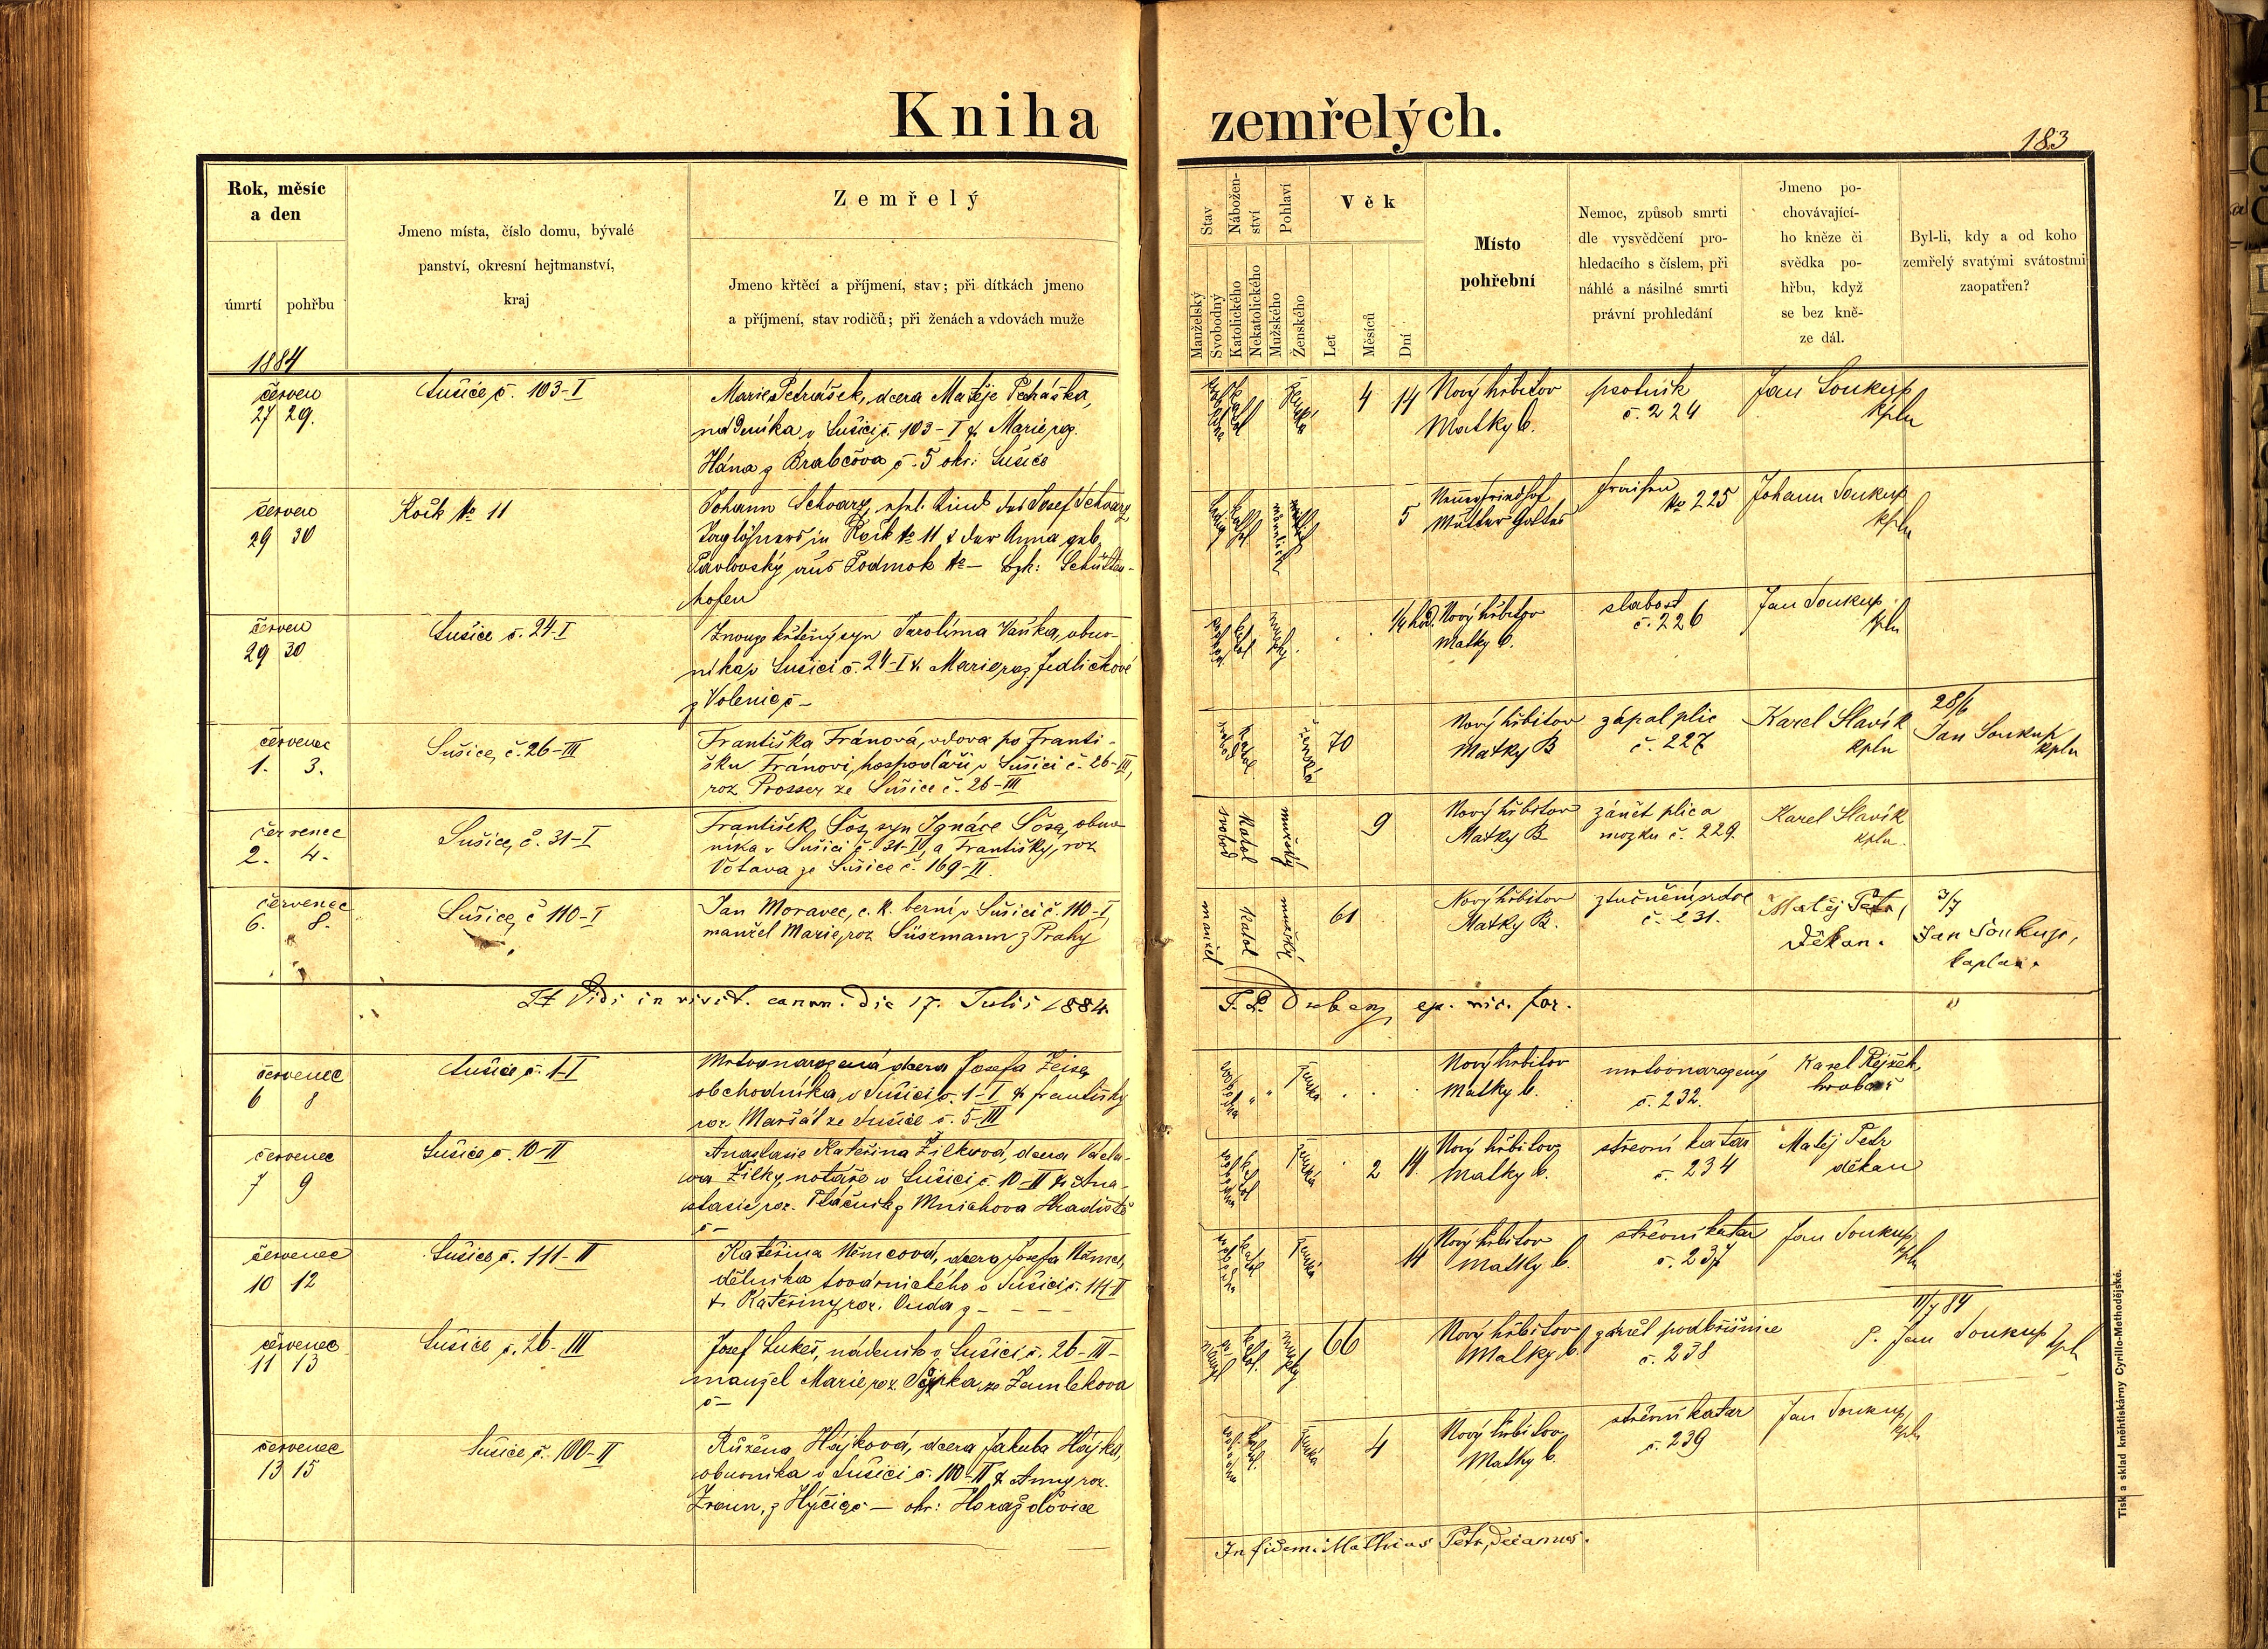 Kniha zemřelých.
183
Rok, měsíc
a den
úmrtí pohřbu
Jmeno místa, číslo domu, bývalé
panství, okresní hejtmanství,
kraj
Zemřelý
Jmeno křtěcí a příjmení, stav; při dítkách jmeno
a příjmení, stav rodičů; při ženách a vdovách muže
Stav
Manželský
Svobodný
Nábožen-
ství
Katolického
Nekatolického
Pohlaví
Mužského
Ženského
Věk
Let
Měsíců
Dní
Místo
pohřební
Nemoc, způsob smrti
dle vysvědčení pro-
hledacího s číslem, při
náhlé a násilné smrti
právní prohledání
Jmeno po-
chovávající-
ho kněze či
svědka po-
hřbu, když
se bez kně-
ze dál.
Byl-li, kdy a od koho
zemřelý svatými svátostmi
zaopatřen?
1884
červen
27 29.
Sušice č. 103-I
Marie Petrášek, dcera Matěje Petráška,
nádeníka v Sušici č. 103-I & Marie roz.
Hána z Brabčova č. 5 okr: Sušice
ženská
4 14
Nový hřbitov
Matky b.
psotník
č. 224
Jan Soukup
kpln
červen
29 30
Kočk No 11
Johann Schvarz, ehel. Kind des Josef Schvarz,
Taglöhners in Kočk No 11 & der Anna geb.
Pavlovský aus Podmok No — Bzh: Schütten-
hofen
männlich
5
Neuer Friedhof
Mutter Gottes
Fraisen
No 225
Johann Soukup
kpln
červen
29 30
Sušice č. 24-I
Znouze křtěný syn Jarolíma Vaňka, obuv-
níka v Sušici č. 24-I & Marie roz. Jedličkové
z Volenic č —
mužský
1/4 hod.
Nový hřbitov
Matky b.
slabost
č. 226
Jan Soukup
kpln
červenec
1. 3.
Sušice, č. 26-III
Františka Fránová, vdova po Franti-
šku Fránovi, hospodáři v Sušici č. 26-III,
roz Prosser ze Sušice č. 26-III
ženská
70
Nový hřbitov
Matky B
zápal plic
č. 227
Karel Slavík
kpln
28/6
Jan Soukup
kpln
červenec
2. 4.
Sušice, č. 31-I
František Šos, syn Ignáce Šosa, obuv-
níka v Sušici č. 31-I, a Františky, roz
Votava ze Sušice č. 169-II.
svobod
Katol
mužský
9
Nový hřbitov
Matky B
zánět plic a
mozku č. 229.
Karel Slavík
kpln.
červenec
6. 8.
Sušice, č 110-I
Jan Moravec, c. k. berní v Sušici č. 110-I,
manžel Marie, roz Süszmann z Prahy
manžel
Katol
mužský
61
Nový hřbitov
Matky B.
ztučnění srdce
č. 231.
Matěj Petr,
Děkan.
3/7
Jan Soukup,
kaplan.
Vidi in visit. canon. die 17. Julii 1884.
ep. vic. for.
červenec
6 8
Sušice č. 1-I
Mrtvonarozená dcera Josefa Zeise,
obchodníka v Sušici č. 1-I & Františky
roz. Maršát ze Sušice č. 5-III
ženská
Nový hřbitov
Matky b.
mrtvonarozený
č. 232.
Karel Rejžek,
hrobař
červenec
7 9
Sušice č. 10-II
Anastasie Kateřina Žilková, dcera Václa-
va Žilky, notáře v Sušici, č. 10-II & Ana-
stasie roz. Plácník z Mnichova Hradiště
č —
ženská
2 14
Nový hřbitov
Matky b.
střevní katar
č. 234
Matěj Petr
děkan
červenec
10 12
Sušice č. 111-II
Kateřina Němcová, dcera Josefa Němce,
dělníka továrnického v Sušici č. 111-II
& Kateřiny roz. Duda z — — —
ženská
14
Nový hřbitov
Matky b.
střevní katar
č. 237
Jan Soukup
kpln
červenec
11 13
Sušice č. 26-III
Josef Lukeš, nádeník v Sušici č. 26-III —
manžel Marie roz. ze Žemlekova
č —
mužský
66
Nový hřbitov
Matky b.
zánět podbřišnice
č. 238
11/7 84
P. Jan Soukup kpln
červenec
13 15
Sušice č. 100-II
Růžena Hájková, dcera Jakuba Hájka,
obuvníka v Sušici č. 100-II & Anny roz.
z Hýčic č — okr: Horažďovice
ženská
4
Nový hřbitov
Matky b.
střevní katar
č. 239
Jan Soukup
kpln
In fidem. Mathias Petr, Decanus.
Tisk a sklad kněhtiskárny Cyrillo-Methodějské.